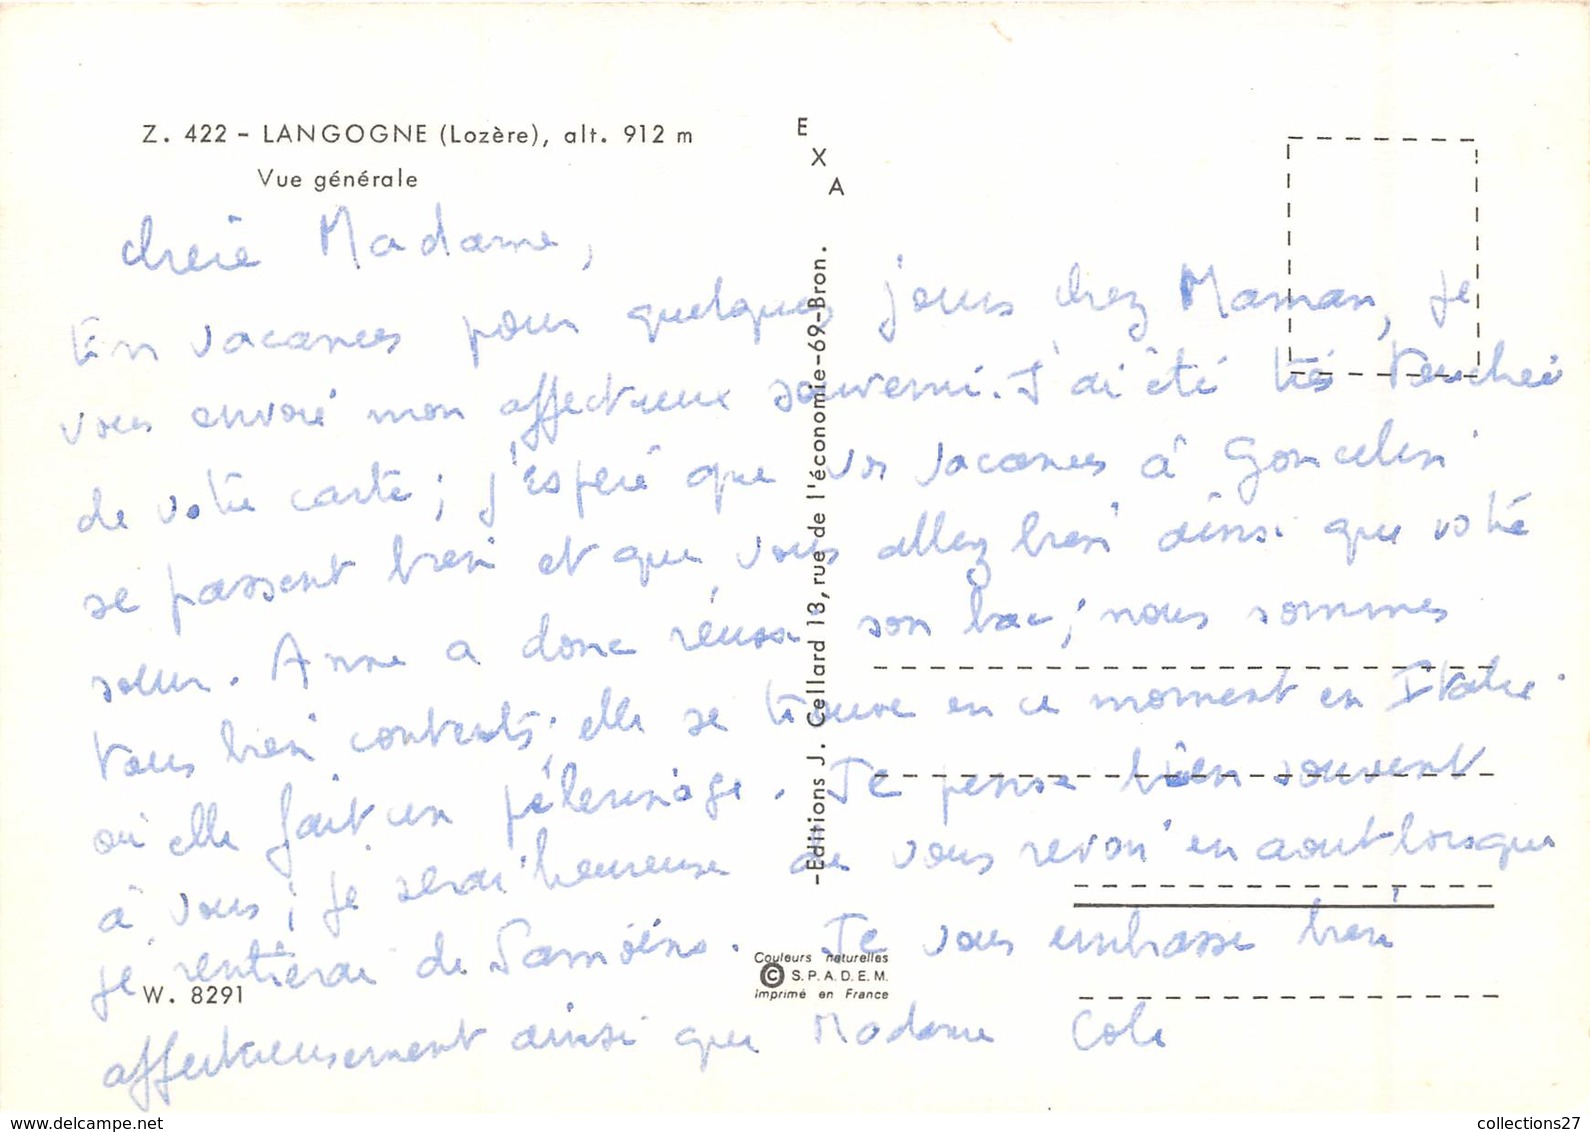 Z. 422 - LANGOGNE (Lozère), alt. 912 m
Vue générale
E
X
A
Chère Madame,
En vacances pour quelques jours chez Maman, je
vous envoie mon affectueux souvenir. J'ai été très touchée
de votre carte ; j'espère que vos vacances à Goncelin
se passent bien et que vous allez bien ainsi que votre
soeur. Anne a donc réussi son bac ; nous sommes
tous bien contents ; elle se trouve en ce moment en Italie
où elle fait un pélerinage. Je pense bien souvent
à vous ; je serai heureuse de vous revoir en aout lorsque
je rentrerai de Samoëns. Je vous embrasse bien
affectueusement ainsi que Madame Cola
-Editions J. Cellard 18, rue de l'économie-69-Bron.
Couleurs naturelles
© S.P.A.D.E.M.
Imprimé en France
W. 8291
www.delcampe.net
collections27